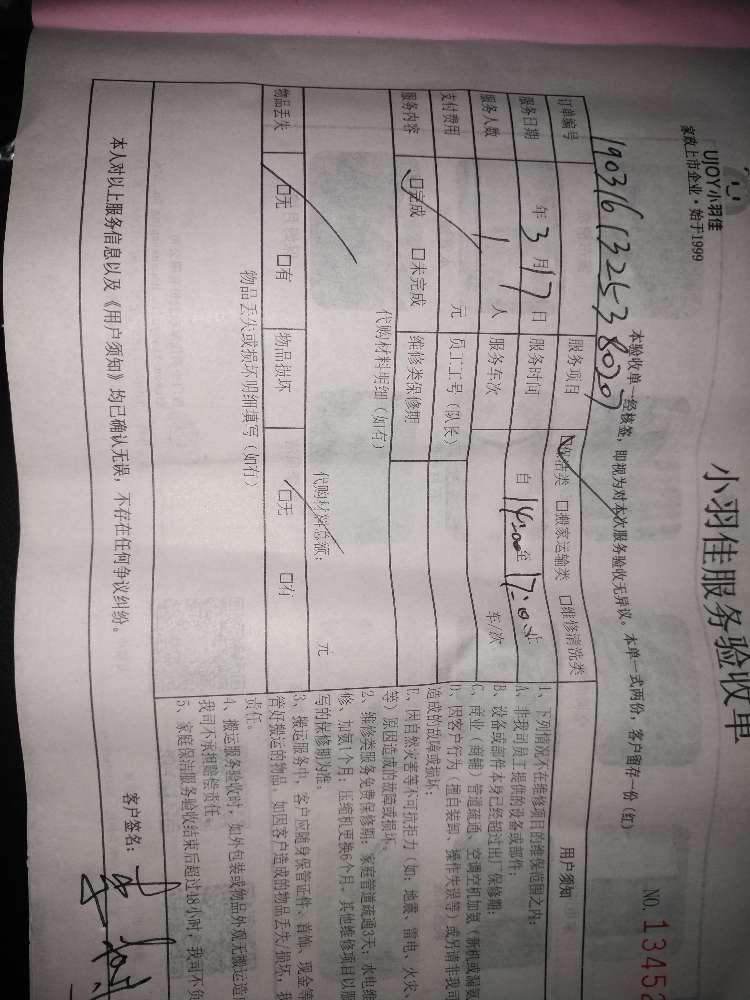 UJOY小羽佳
家政上市企业·始于1999
小羽佳服务验收单
NO. 13458
本验收单一经核签，即视为对本次服务验收无异议。本单一式两份，客户留存一份（红）
订单编号 190316132538020
服务项目 □保洁类 □搬家运输类 □维修清洗类
服务日期 年 3 月 17 日 服务时间 自 14:00 至 17:00止
服务人数 1 人 服务车次 车/次
支付费用 元 员工工号（队长）
服务内容 □完成 □未完成 维修类保修期
代购材料明细（如有）
代购材料总额： 元
物品丢失 □无 □有 物品损坏 □无 □有
物品丢失或损坏明细填写（如有）
用户须知
1、下列情况不在维修项目的维保范围之内：
A、非我司员工提供的设备或部件；
B、设备或部件本身已经超过出厂保修期；
C、商业（商铺）管道疏通、空调空机加氨（新机或漏氨
D、因客户行为（擅自装卸、操作失误等）或另请非我司
造成的故障或损坏；
E、因自然灾害等不可抗拒力（如：地震、雷电、火灾、
等）原因造成的故障或损坏。
2、维修类服务免费保修期：家庭管道疏通3天；水电维
修、加氨1个月；压缩机更换6个月、其他维修项目以服
写的保修期为准。
3、搬运服务中，客户应随身保管证件、首饰、现金等
管好搬运的物品，如因客户造成的物品丢失/损坏，我
责任。
4、搬运服务验收时，如外包装或物品外观无搬运造
我司不承担赔偿责任。
5、家庭保洁服务验收结束后超过48小时，我司不负
本人对以上服务信息以及《用户须知》均已确认无误，不存在任何争议纠纷。
客户签名：